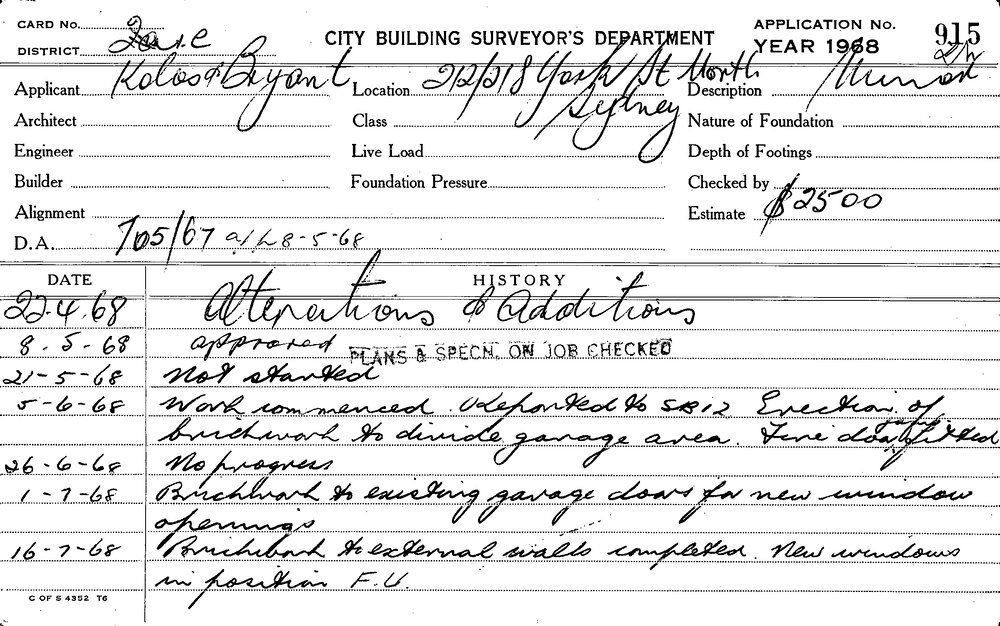 CARD No.
CITY BUILDING SURVEYOR'S DEPARTMENT
APPLICATION No. 915
DISTRICT
YEAR 1968
Applicant Kolos & Bryant
Location 212/218 York St North
Sydney
Description
Architect
Class
Nature of Foundation
Engineer
Live Load
Depth of Footings
Builder
Foundation Pressure
Checked by
Alignment
Estimate $2500
D.A. 705/67 a/L 8-5-68
DATE HISTORY
22.4.68 Alterations & Additions
8.5-68 approved PLANS & SPECN. ON JOB CHECKED
21-5-68 Not started
5-6-68 Work commenced. Reported to SB12 Erection of
brickwork to divide garage area. Fire door jamb fitted
26-6-68 No progress
1-7-68 Brickwork to existing garage doors for new window
openings
16-7-68 Brickwork to external walls completed. New windows
in position F.U.
C OF S 4352 T6